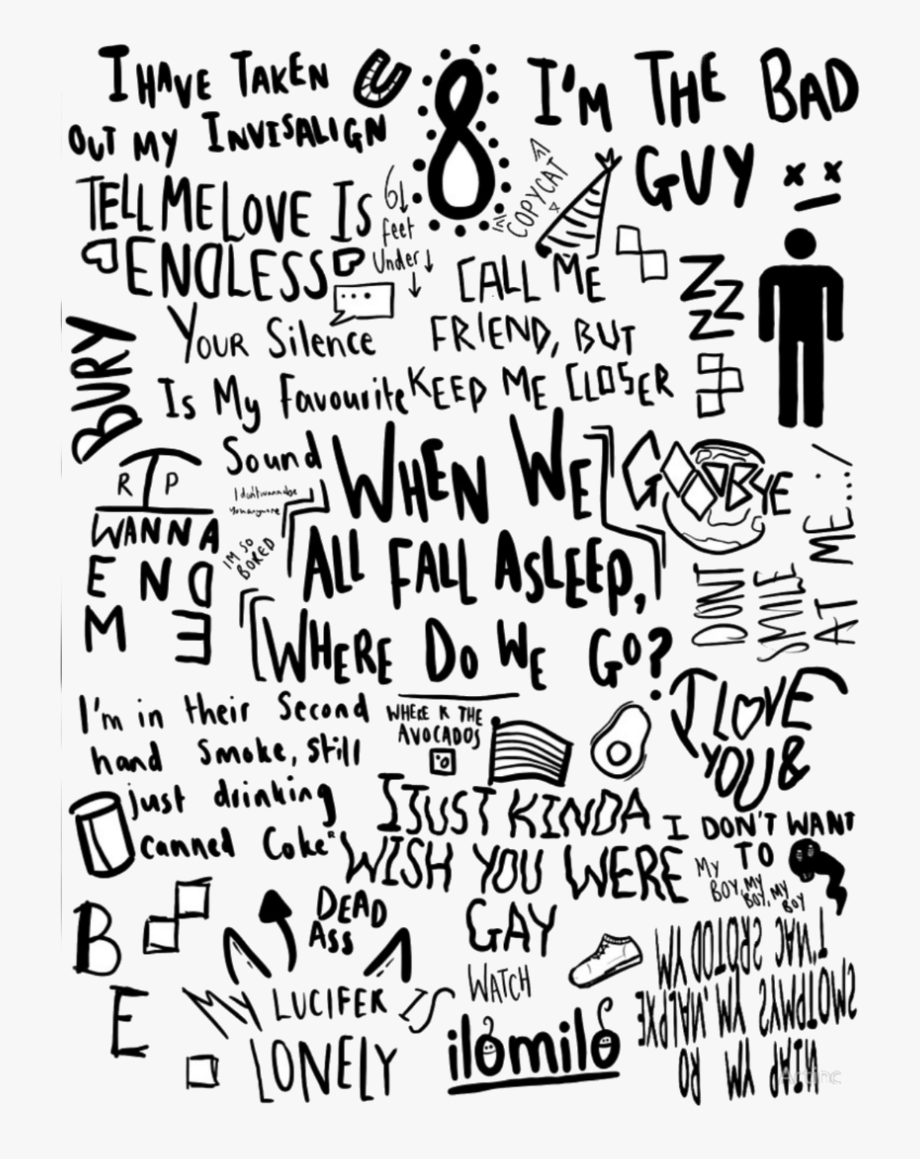 I HAVE TAKEN
OUT MY INVISALIGN
8
I'M THE BAD
GUY
TELL ME LOVE IS
ENDLESS
6
feet
Under
COPYCAT
CALL ME
FRIEND, BUT
KEEP ME CLOSER
ZZZ
YOUR Silence
Is My Favourite
Sound
BURY
R P
I don't wanna be
you anymore
I'M SO
BORED
WHEN WE
ALL FALL ASLEEP,
WHERE DO WE GO?
GOODBYE
WANNA
END
ME
DONT
SMILE
AT ME...:/
I'm in their Second
hand Smoke, still
just drinking
canned Coke
WHERE R THE
AVOCADOS
I LOVE
YOU &
I JUST KINDA
WISH YOU WERE
GAY
I DON'T WANT
TO
MY
BOY, MY
BOY, MY
BOY
B
E
DEAD
ASS
MY LUCIFER IS
LONELY
WATCH
ilomilo
MY DOTODRS CAN'T
EXPLAIN MY SYMPTOMS
OR MY PAIN